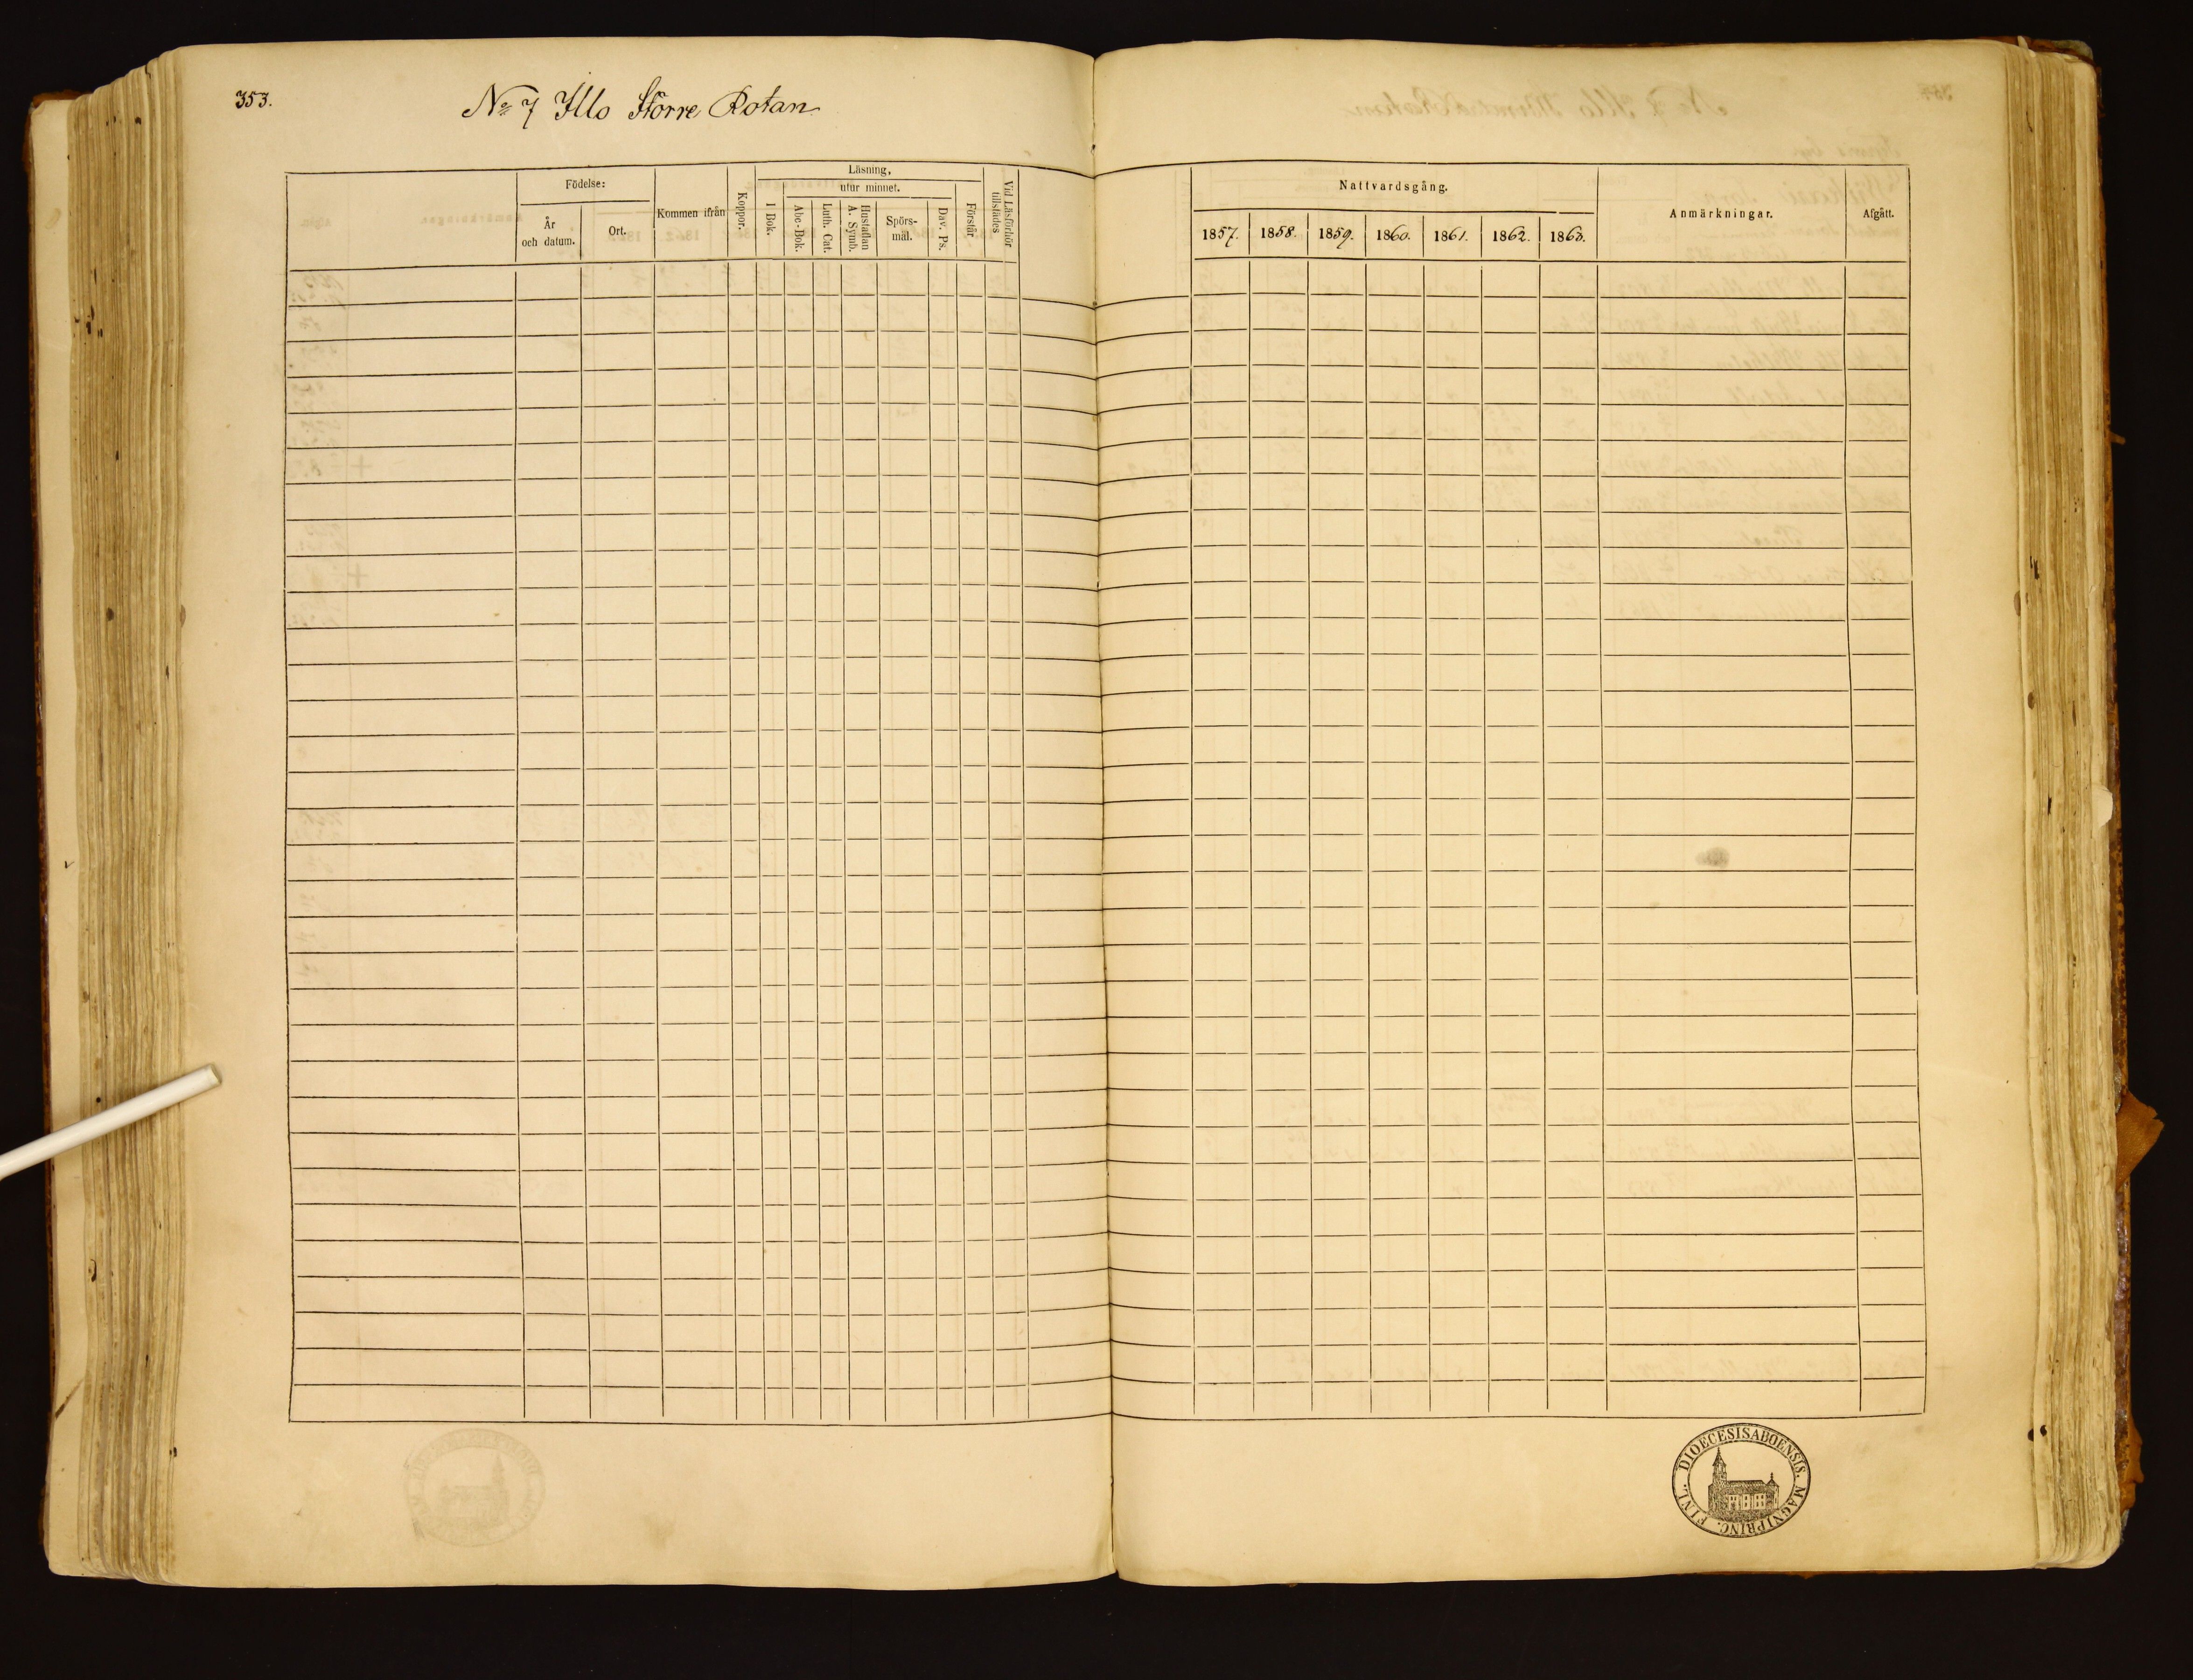 353.
No 7 Illo Större Rotan
Födelse:
År
och datum.
Ort.
Kommen ifrån
Koppor.
Läsning,
I Bok.
utur minnet.
Abc-Bok.
Luth. Cat.
Hustaflan
A. Symb.
Spörs-
mål.
Dav. Ps.
Förstår
Vid Läsförhör
tillstädes
Nattvardsgång.
1857. 1858. 1859. 1860. 1861. 1862. 1863.
Anmärkningar.
Afgått.
DIOECESIS ABOENSIS. MAGNI PRINC. FINL.